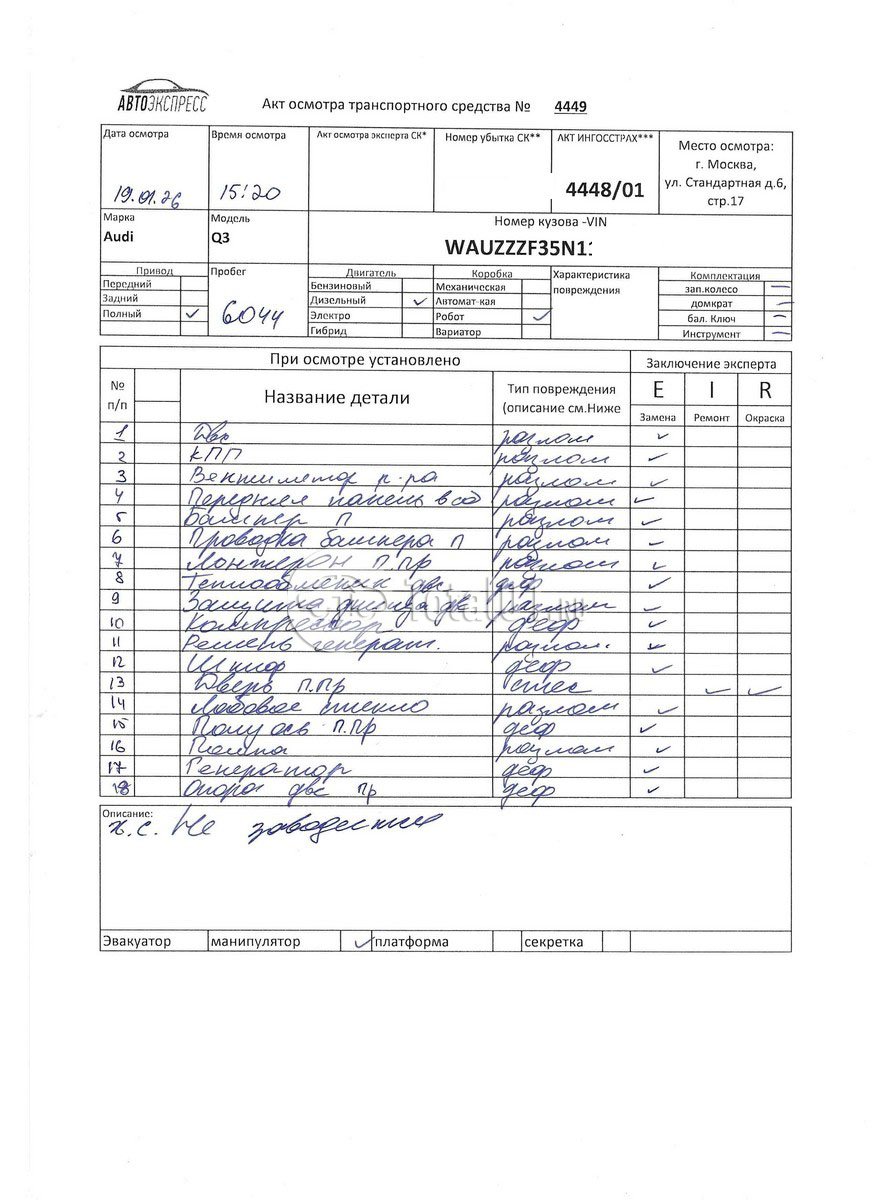 АВТОЭКСПРЕСС
Акт осмотра транспортного средства № 4449
Дата осмотра Время осмотра Акт осмотра эксперта СК* Номер убытка СК** АКТ ИНГОССТРАХ*** Место осмотра:
г. Москва,
ул. Стандартная д.6,
стр.17
19.01.26 15:20 4448/01
Марка Модель Номер кузова -VIN
Audi Q3 WAUZZZF35N1
Привод Пробег Двигатель Коробка Характеристика повреждения Комплектация
Передний Бензиновый Механическая зап.колесо —
Задний Дизельный ✓ Автомат-кая домкрат —
Полный ✓ 6044 Электро Робот ✓ бал. Ключ —
Гибрид Вариатор Инструмент —
При осмотре установлено Заключение эксперта
№ п/п Название детали Тип повреждения (описание см.Ниже E I R
Замена Ремонт Окраска
1 Двс разлом ✓
2 КПП разлом ✓
3 Вентилятор р-ра разлом ✓
4 Передняя панель в сб разлом ✓
5 Бампер П разлом ✓
6 Проводка бампера П разлом ✓
7 Лонжерон П.Пр разлом ✓
8 Теплообменник двс деф ✓
9 Защита днища двс разлом ✓
10 Компрессор деф ✓
11 Ремень генерат. разлом. ✓
12 Шкив деф ✓
13 Дверь П.Пр ✓ ✓
14 Лобовое стекло разлом ✓
15 Полуось П.Пр деф ✓
16 Помпа разлом ✓
17 Генератор деф ✓
18 Опора двс Пр деф ✓
Описание:
х.с. Не заводится
Эвакуатор манипулятор ✓ платформа секретка